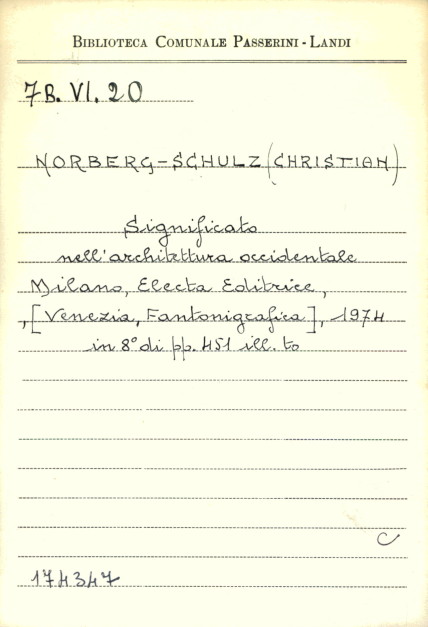 BIBLIOTECA COMUNALE PASSERINI - LANDI
7B. VI. 20
NORBERG-SCHULZ (CHRISTIAN)
Significato
nell'architettura occidentale
Milano, Electa Editrice,
, [Venezia, Fantonigrafica], 1974
in 8° di pp. 451 ill. to
C
174347